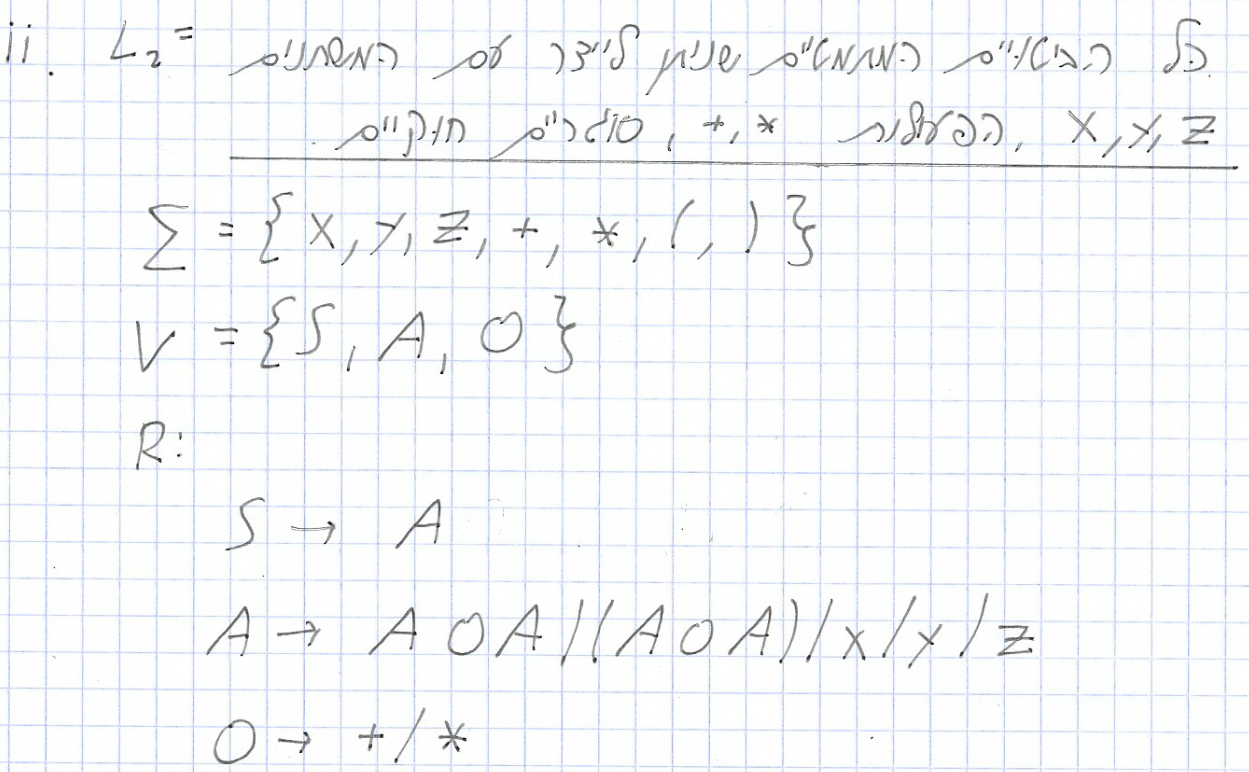 ii. L₂ = כל הביטויים המתמטיים שניתן לייצר עם המשתנים
x, y, z, הפעולות *,+, סוגריים חוקיים.
Σ = {x, y, z, +, *, (, )}
V = {S, A, O}
R:
S → A
A → AOA/(AOA)/x/y/z
O → +/*